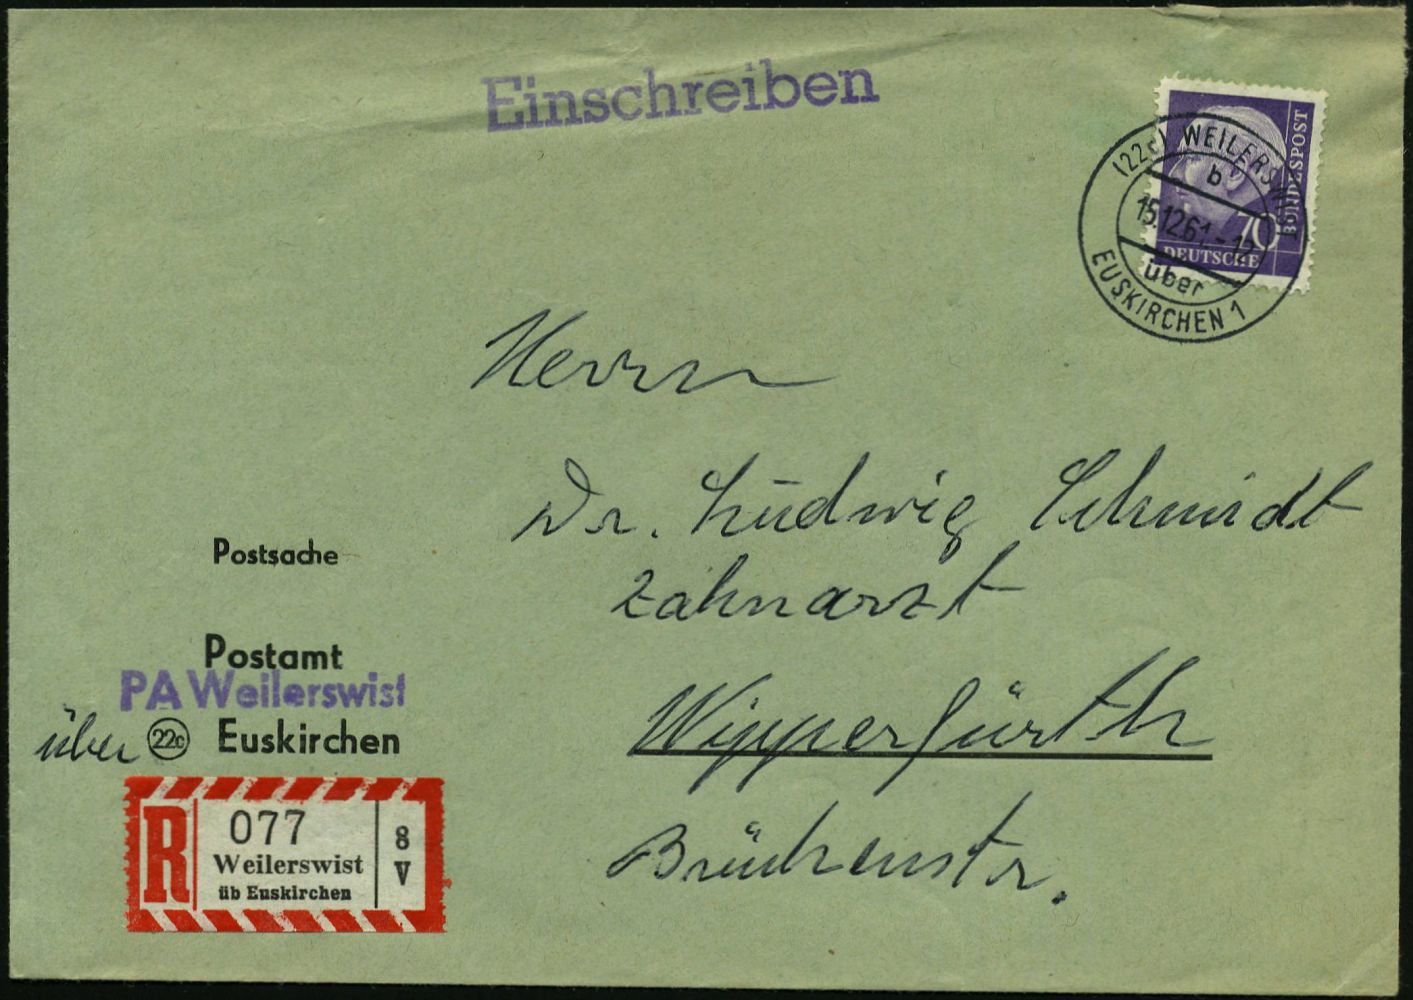 Einschreiben
(22c) WEILERSWIST
b
15.12.61.-12
über
EUSKIRCHEN 1
70
DEUTSCHE
BUNDESPOST
Herrn
Dr. Ludwig Schmidt
Zahnarzt
Wipperfürth
Brückenstr.
Postsache
Postamt
PA Weilerswist
über 22c Euskirchen
R 077 8
Weilerswist V
üb Euskirchen